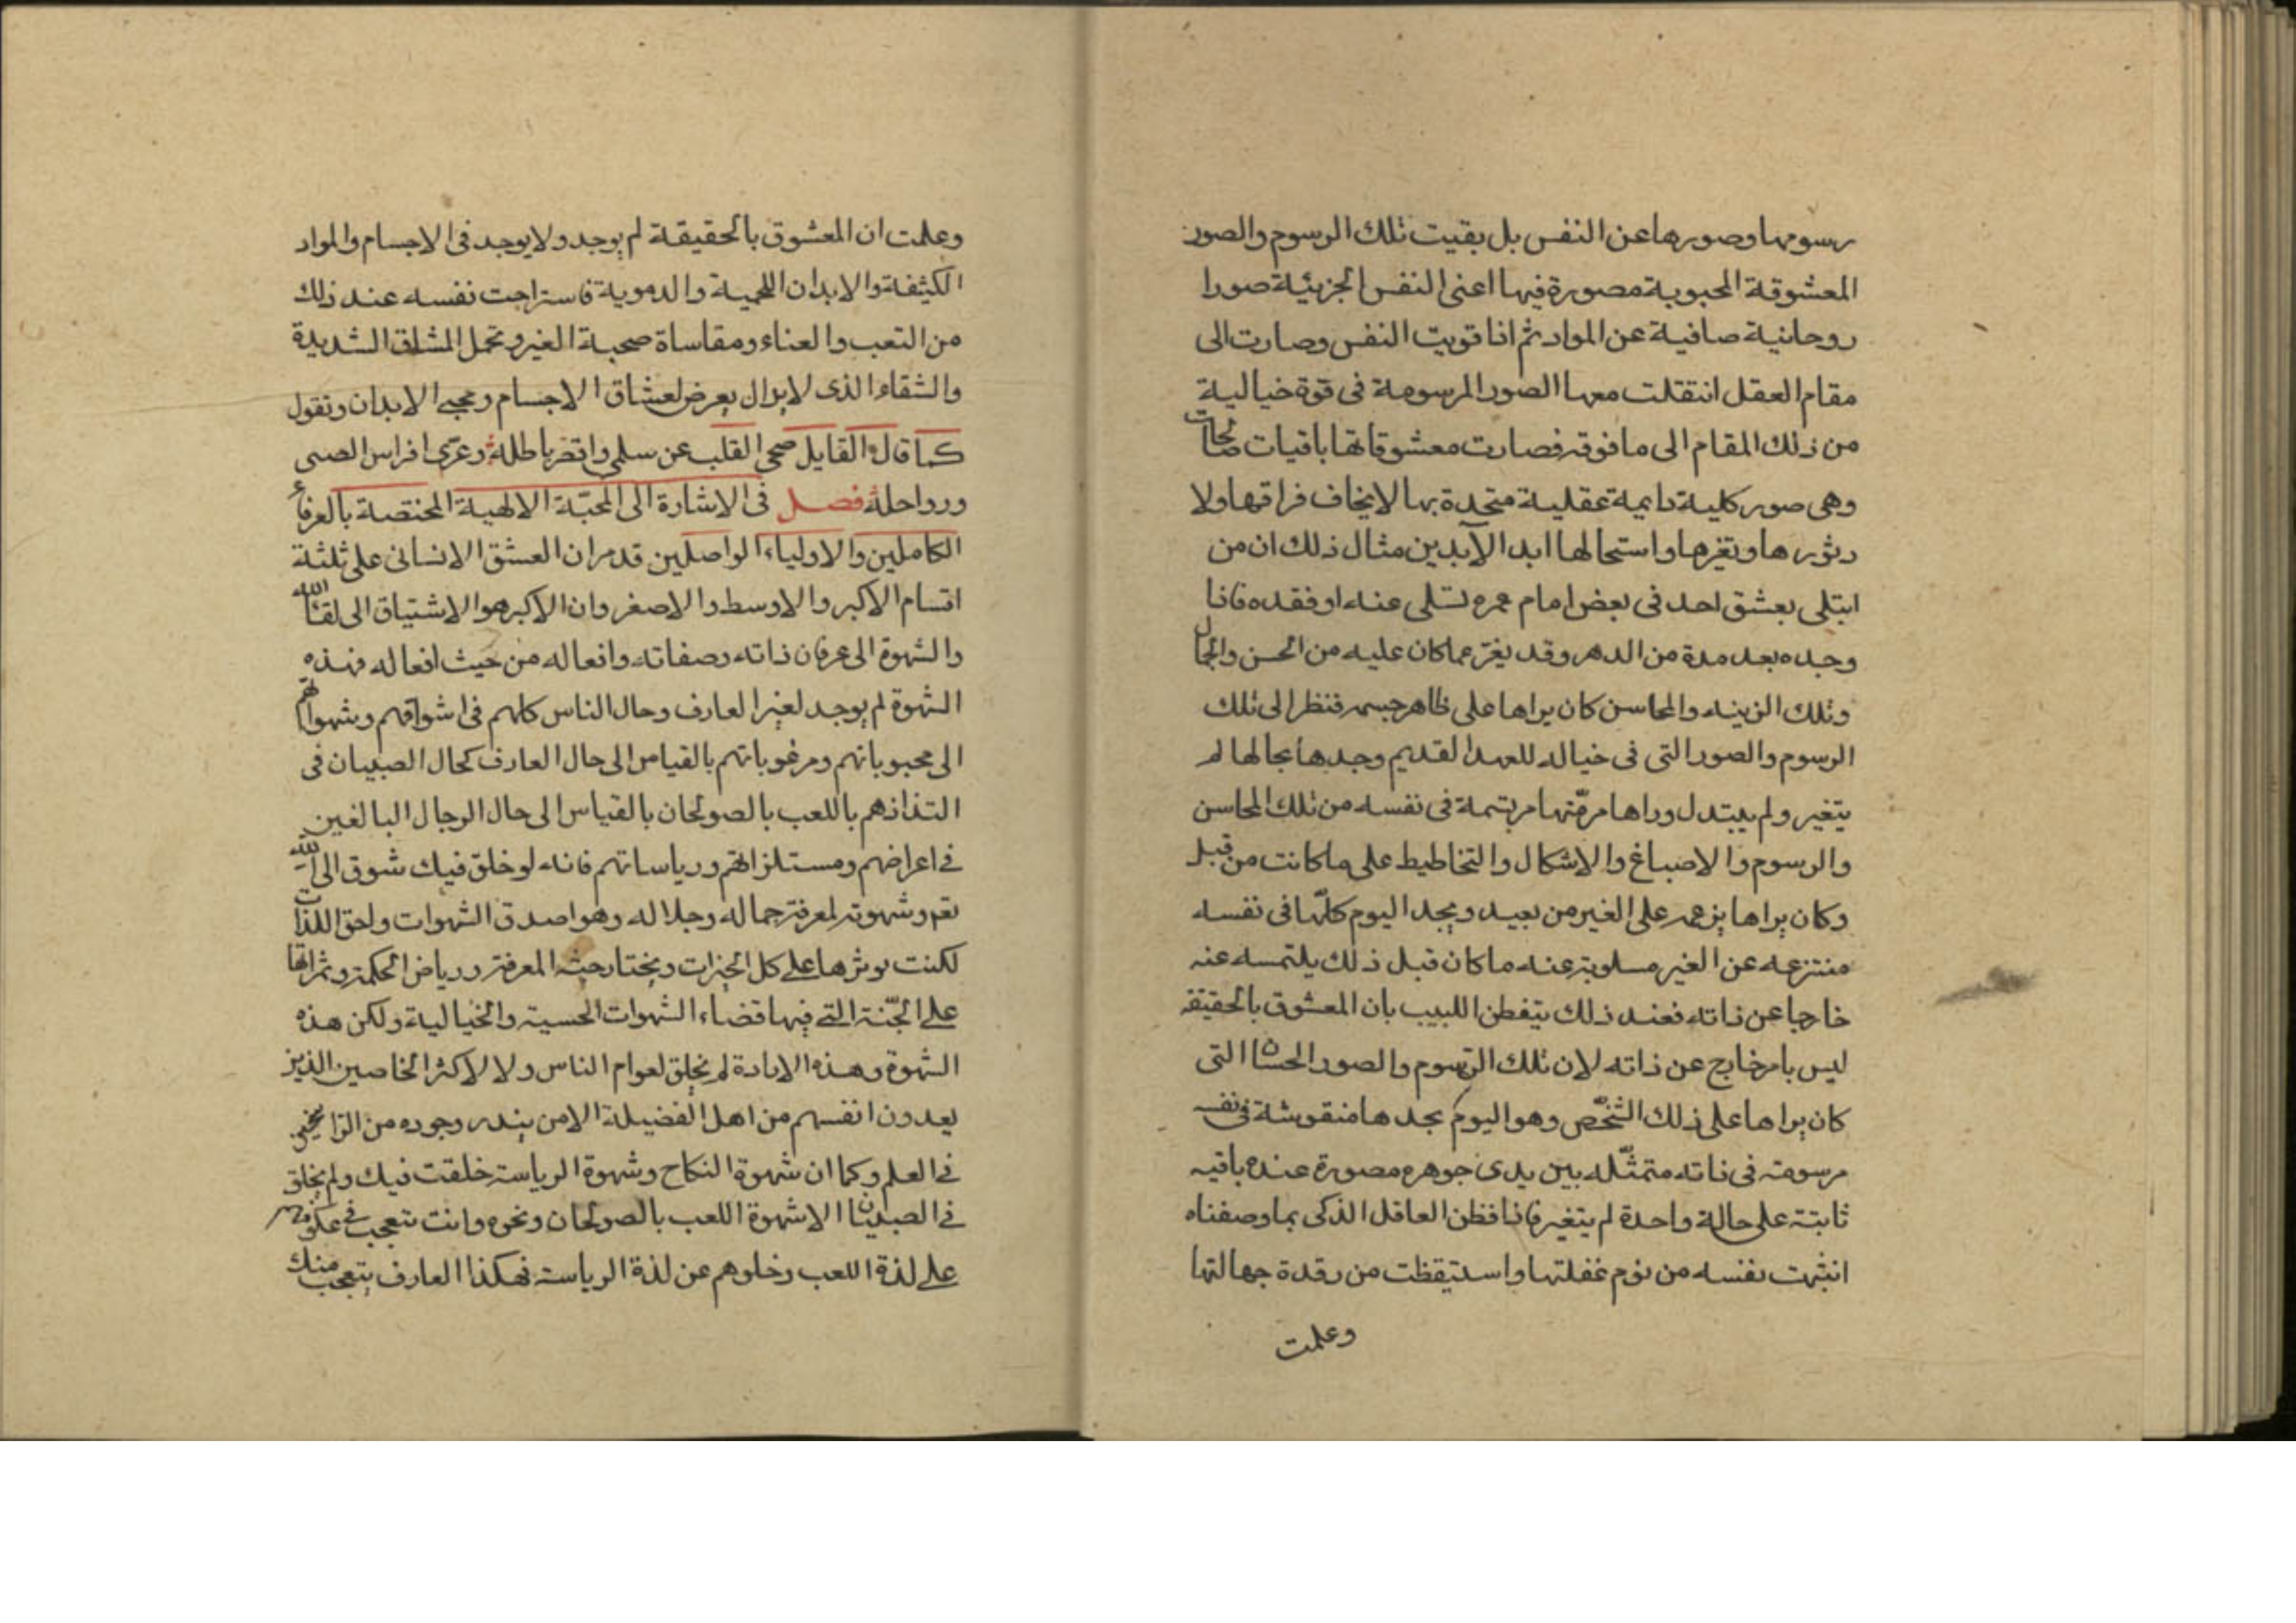 رسومها وصورها عن النفس بل بقيت تلك الرسوم والصور
المعشوقة المحبوبة مصورة فيها اعنى النفس الجزئية صورا
روحانية صافية عن المواد ثم اذا قويت النفس وصارت الى
مقام العقل انتقلت معها الصور المرسومة فى قوة خيالية
من ذلك المقام الى ما فوقه فصارت معشوقاتها باقيات صالحات
وهى صور كلية دايمة عقلية متحدة بها لا يخاف فراقها ولا
دثورها وتغيرها واستحالها ابد الآبدين مثال ذلك ان من
ابتلى بعشق احد فى بعض امام عمره تسلى عنه او فقده فاذا
وجده بعد مدة من الدهر وقد يغير عما كان عليه من الحسن والجمال
وتلك الزينه والمحاسن كان يراها على ظاهر جسمه فنظر الى تلك
الرسوم والصور التى فى خياله للعهد القديم وجدها بحالها لم
يتغير ولم يبتدل وراها مرتسمة فى نفسه من تلك المحاسن
والرسوم والاصباغ والاشكال والتخاطيط على ما كانت من قبل
وكان يراها بزعمه على الغير من بعيد ويجد اليوم كلّها فى نفسه
منتزعه عن الغير مسلوبة عنه ما كان قبل ذلك يلتمسه عنه
خارجا عن ذاته فعند ذلك يتفطن اللبيب بان المعشوق بالحقيقه
ليس بامر خارج عن ذاته لان تلك الرّسوم والصور الحسان التى
كان يراها على ذلك الشخّص وهو اليوم يجدها منقوشة فى نفسه
مرسومه فى ذاته متمثّله بين يدى جوهره مصورة عنده باقيه
ثابتة على حالة واحدة لم يتغير فاذا فظن العاقل الذكى بما وصفناه
انتبهت نفسه من نوم غفلتها واستيقظت من رقدة جهالتها
وعلمت
وعلمت ان المعشوق بالحقيقة لم يوجد ولا يوجد فى الاجسام والمواد
الكثيفة والابدان اللحمية والدموية فاستراحت نفسه عند ذلك
من التعب والعناء ومقاساة صحبة الغير وتحمل المشاق الشديدة
والشقاء الذى لا يزال يعرض لعشاق الاجسام ومحبى الابدان وتقول
كما قال القايل صحى القلب عن سلمى واقصر باطله وعرّى افراس الصبى
ورواحله فصل فى الاشارة الى المحبّة الالهية المختصة بالعرفاء
الكاملين والاولياء الواصلين قد مر ان العشق الانسانى على ثلثة
اقسام الاكبر والاوسط والاصغر وان الاكبر هو الاشتياق الى لقاء الله
والشهوة الى عرفان ذاته وصفاته وافعاله من حيث افعاله فهذه
الشهوة لم يوجد لغير العارف وحال الناس كلهم فى اشواقهم وشهواتهم
الى محبوباتهم ومرغوباتهم بالقياس الى حال العارف كحال الصبيان فى
التذاذهم باللعب بالصولجان بالقياس الى حال الرجال البالغين
فى اعراضهم ومستلزاتهم ورياساتهم فانه لو خلق فيك شوق الى الله
تعم وشهوته لمعرفة جماله وجلاله وهو اصدق الشهوات واحق اللذات
لكنت توثرها على كل الخيرات ويختار جنه المعرفة ورياض الحكمة وثمراتها
على الجّنة التى فيها قضاء الشهوات الحسية والخيالية ولكن هذه
الشهوة وهذه الارادة لم يخلق لعوام الناس ولا لاكثر الخاصين الذين
يعدون انفسهم من اهل الفضيلة الا من يندر وجوده من الراسخين
فى العلم وكما ان شهوة النكاح وشهوة الرياسة خلقت فيك ولم يخلق
فى الصبيان الا شهوة اللعب بالصولجان ونحوه وانت تتعجب فى عكوفهم
على لذة اللعب وخلوهم عن لذة الرياسة فهكذا العارف يتعجب منك